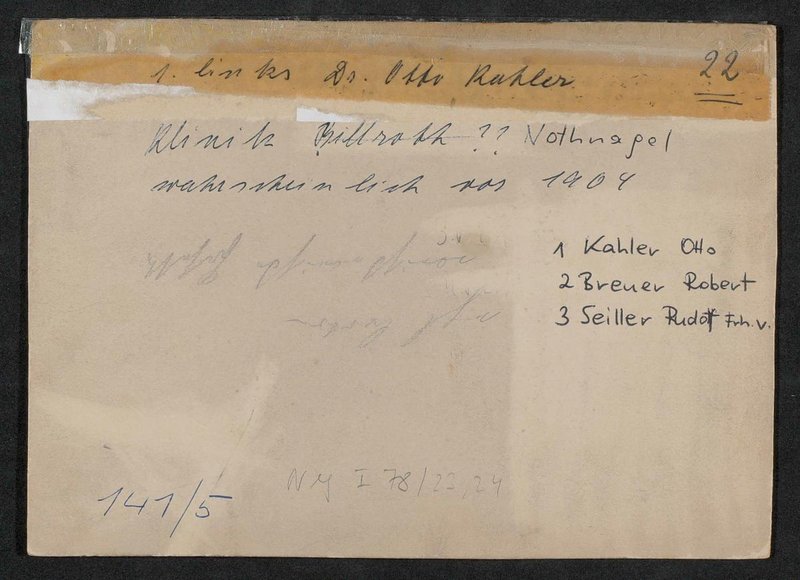 1. links Dr. Otto Kahler
22
Klinik Billroth ?? Nothnagel
wahrscheinlich vor 1904
1 Kahler Otto
2 Breuer Robert
3 Seiller Rudolf Frh. v.
141/5
NY I 78/23, 24